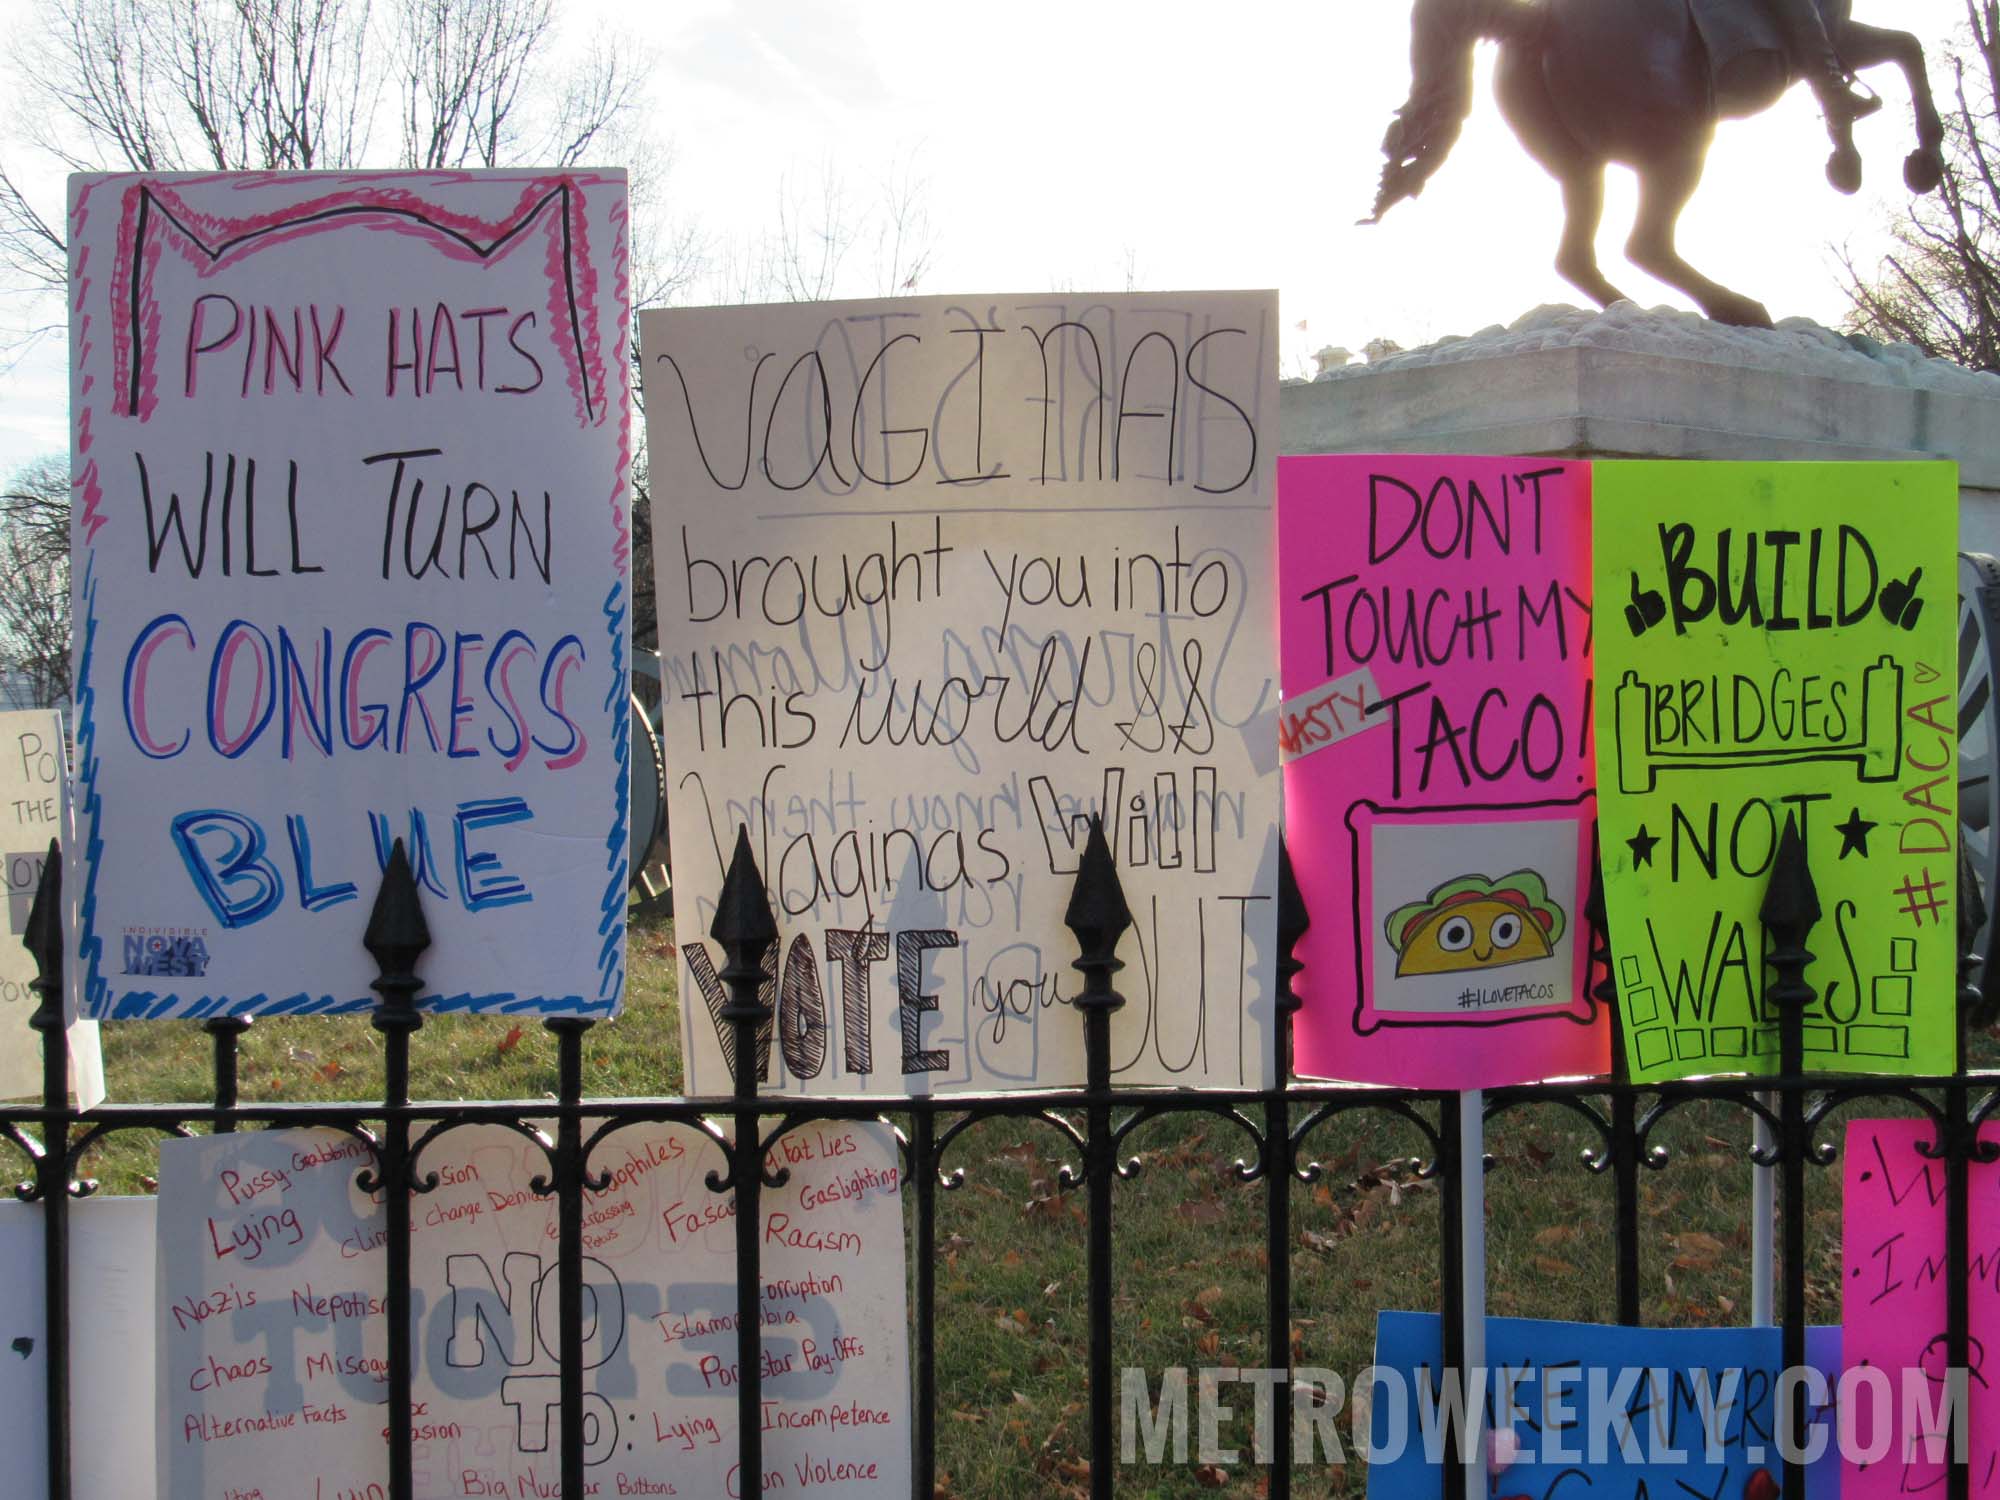 PINK HATS
WILL TURN
CONGRESS
BLUE
INDIVISIBLE
NOVA
WEST
VAGINAS
brought you into
this world &&
Vaginas Will
VOTE you OUT
HERE'S TO:
Strong Women
may we know them
DON'T
TOUCH MY
NASTY
TACO!
#ILOVETACOS
BUILD
BRIDGES
NOT
WALLS
#DACA
PO
THE
Pussy-Grabbing
Lying
Climate Change Denial
Embarrassing
Potus
Big Fat Lies
Gaslighting
Racism
Nazis Nepotism
Corruption
Islamophobia
NO
TO:
Chaos
Porn Star Pay-Offs
Alternative Facts
Lying Incompetence
Big Nuclear Buttons
Gun Violence
MAKE AMERICA
GAY
METROWEEKLY.COM